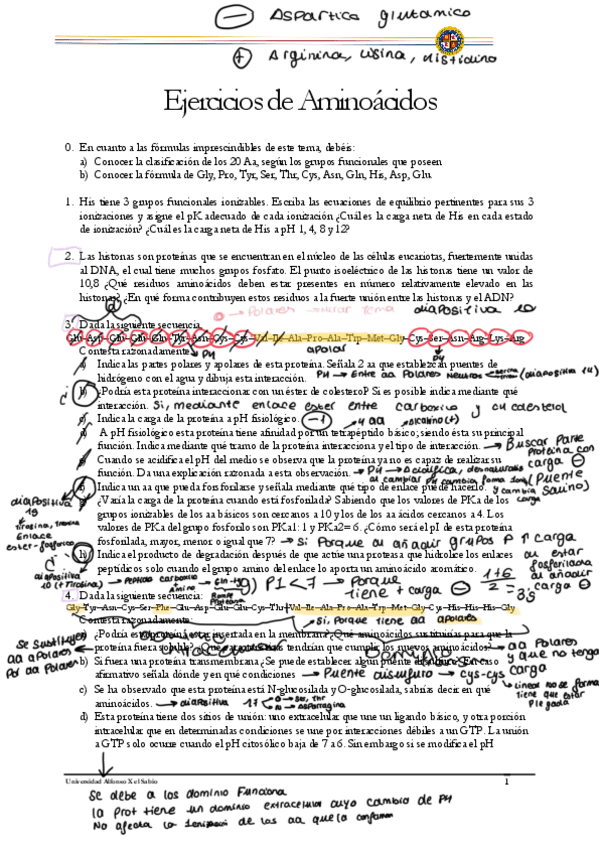 ⊖ Aspartico glutamico
⊕ Arginina, Lisina, Histidino
Ejercicios de Aminoácidos
0. En cuanto a las fórmulas imprescindibles de este tema, debéis:
a) Conocer la clasificación de los 20 Aa, según los grupos funcionales que poseen
b) Conocer la fórmula de Gly, Pro, Tyr, Ser, Thr, Cys, Asn, Gln, His, Asp, Glu
1. His tiene 3 grupos funcionales ionizables. Escriba las ecuaciones de equilibrio pertinentes para sus 3
ionizaciones y asigne el pK adecuado de cada ionización ¿Cuál es la carga neta de His en cada estado
de ionización? ¿Cuál es la carga neta de His a pH 1, 4, 8 y 12?
2. Las histonas son proteínas que se encuentran en el núcleo de las células eucariotas, fuertemente unidas
al DNA, el cual tiene muchos grupos fosfato. El punto isoeléctrico de las histonas tiene un valor de
10,8 ¿Qué residuos aminoácidos deben estar presentes en número relativamente elevado en las
histonas? ¿En qué forma contribuyen estos residuos a la fuerte unión entre las histonas y el ADN?
→ Polares mirar tema diapositiva 10
3. Dada la siguiente secuencia
Glu–Asp–Glu–Glu–Glu–Thr–Asn–Cys–Cys–Val–Ile–Ala–Pro–Ala–Trp–Met–Gly–Cys–Ser–Asn–Arg–Cys–Arg
Contesta razonadamente PH apolar PH
Indica las partes polares y apolares de esta proteína. Señala 2 aa que establezcan puentes de
hidrógeno con el agua y dibuja esta interacción. PH → Entre aa Polares Neutros (diapositiva 14)
b) ¿Podría esta proteína interaccionar con un éster de colesterol? Si es posible indica mediante qué
interacción. Si, mediante enlace ester entre carboxilo y OH colesterol
Indica la carga de la proteína a pH fisiológico. → -1 → 4 aa
A pH fisiológico esta proteína tiene afinidad por un tetrapéptido básico; siendo ésta su principal
función. Indica mediante qué tramo de la proteína interacciona y el tipo de interacción. → Buscar Parte
Proteina con
carga ⊖
(Puente
Salino)
Cuando se acidifica el pH del medio se observa que la proteína ya no es capaz de realizar su
función. Da una explicación razonada a esta observación. → PH → Acidifica, desnaturaliza
al cambiar PH cambia forma y cambia carga
Indica un aa que pueda fosforilarse y señala mediante qué tipo de enlace puede hacerlo.
diapositiva
19
tirosina, treonina
Enlace
ester-fosforico
¿Varía la carga de la proteína cuando está fosforilada? Sabiendo que los valores de PKa de los
grupos ionizables de los aa básicos son cercanos a 10 y los de los aa ácidos cercanos a 4. Los
valores de PKa del grupo fosforilo son PKa1: 1 y PKa2= 6. ¿Cómo será el pI de esta proteína
fosforilada, mayor, menor o igual que 7? → Si Porque al añadir grupos P ↑ carga ⊖
h) Indica el producto de degradación después de que actúe una proteasa que hidrolice los enlaces
peptídicos solo cuando el grupo amino del enlace lo aporta un aminoácido aromático.
al estar
fosforilada
al añadir
carga ⊖
diapositiva
10 (+ Tirosina) → Peptido carboxilo
amino
g) PI < 7 → Porque
tiene + carga ⊖ 1+6/2 = 3'5
4. Dada la siguiente secuencia:
Gly–Tyr–Asn–Cys–Ser–Phe–Glu–Asp–Glu–Glu–Cys–Thr–Val–Ile–Ala–Pro–Ala–Trp–Met–Gly–Cys–His–His–His–Gly
Contesta razonadamente: → Si, Porque tiene aa apolares
¿Podría esta proteína estar insertada en la membrana? ¿Qué aminoácidos sustituirías para que la
proteína fuera soluble? ¿Qué características tendrían que cumplir los nuevos aminoácidos? → aa Polares
y que no tenga
carga
Se sustituyen
aa apolares
Por aa Polares
b) Si fuera una proteína transmembrana ¿Se puede establecer algún puente disulfuro? En caso
afirmativo señala dónde y en qué condiciones → Puente disulfuro → cys-cys
↳ Lineal no se forma
tiene que estar
Plegada
c) Se ha observado que esta proteína está N-glucosilada y O-glucosilada, sabrías decir en qué
aminoácidos. → diapositiva 17 O → Ser, Thr
N → Asparragina
d) Esta proteína tiene dos sitios de unión: uno extracelular que une un ligando básico, y otra porción
intracelular que en determinadas condiciones se une por interacciones débiles a un GTP. La unión
a GTP solo ocurre cuando el pH citosólico baja de 7 a 6. Sin embargo si se modifica el pH
Universidad Alfonso X el Sabio 1
Se debe a los dominio Funciona
la Prot tiene un dominio extracelular cuyo cambio de PH
No afecta la Ionizacion de los aa que la conforman